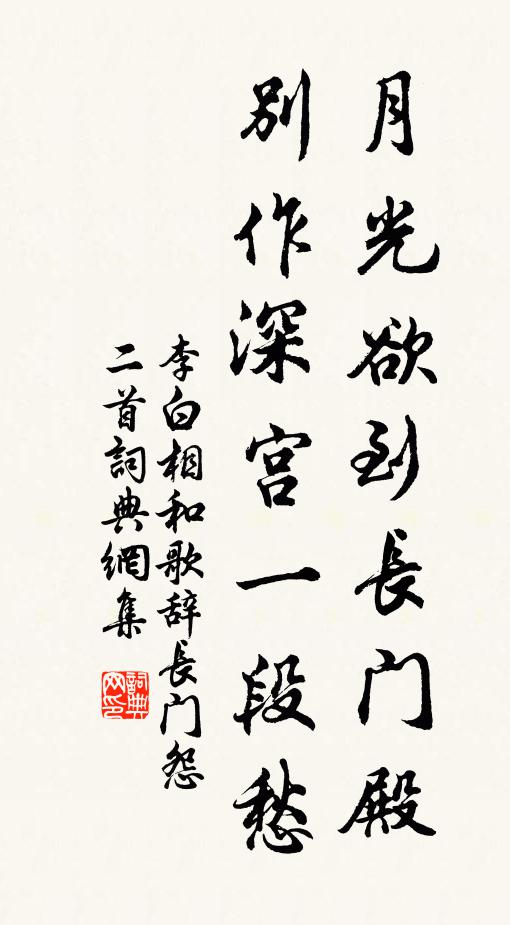 月光欲到長门殿
別作深宫一段愁
李白相和歌辞長门怨
二首詞典網集
詞典
网印